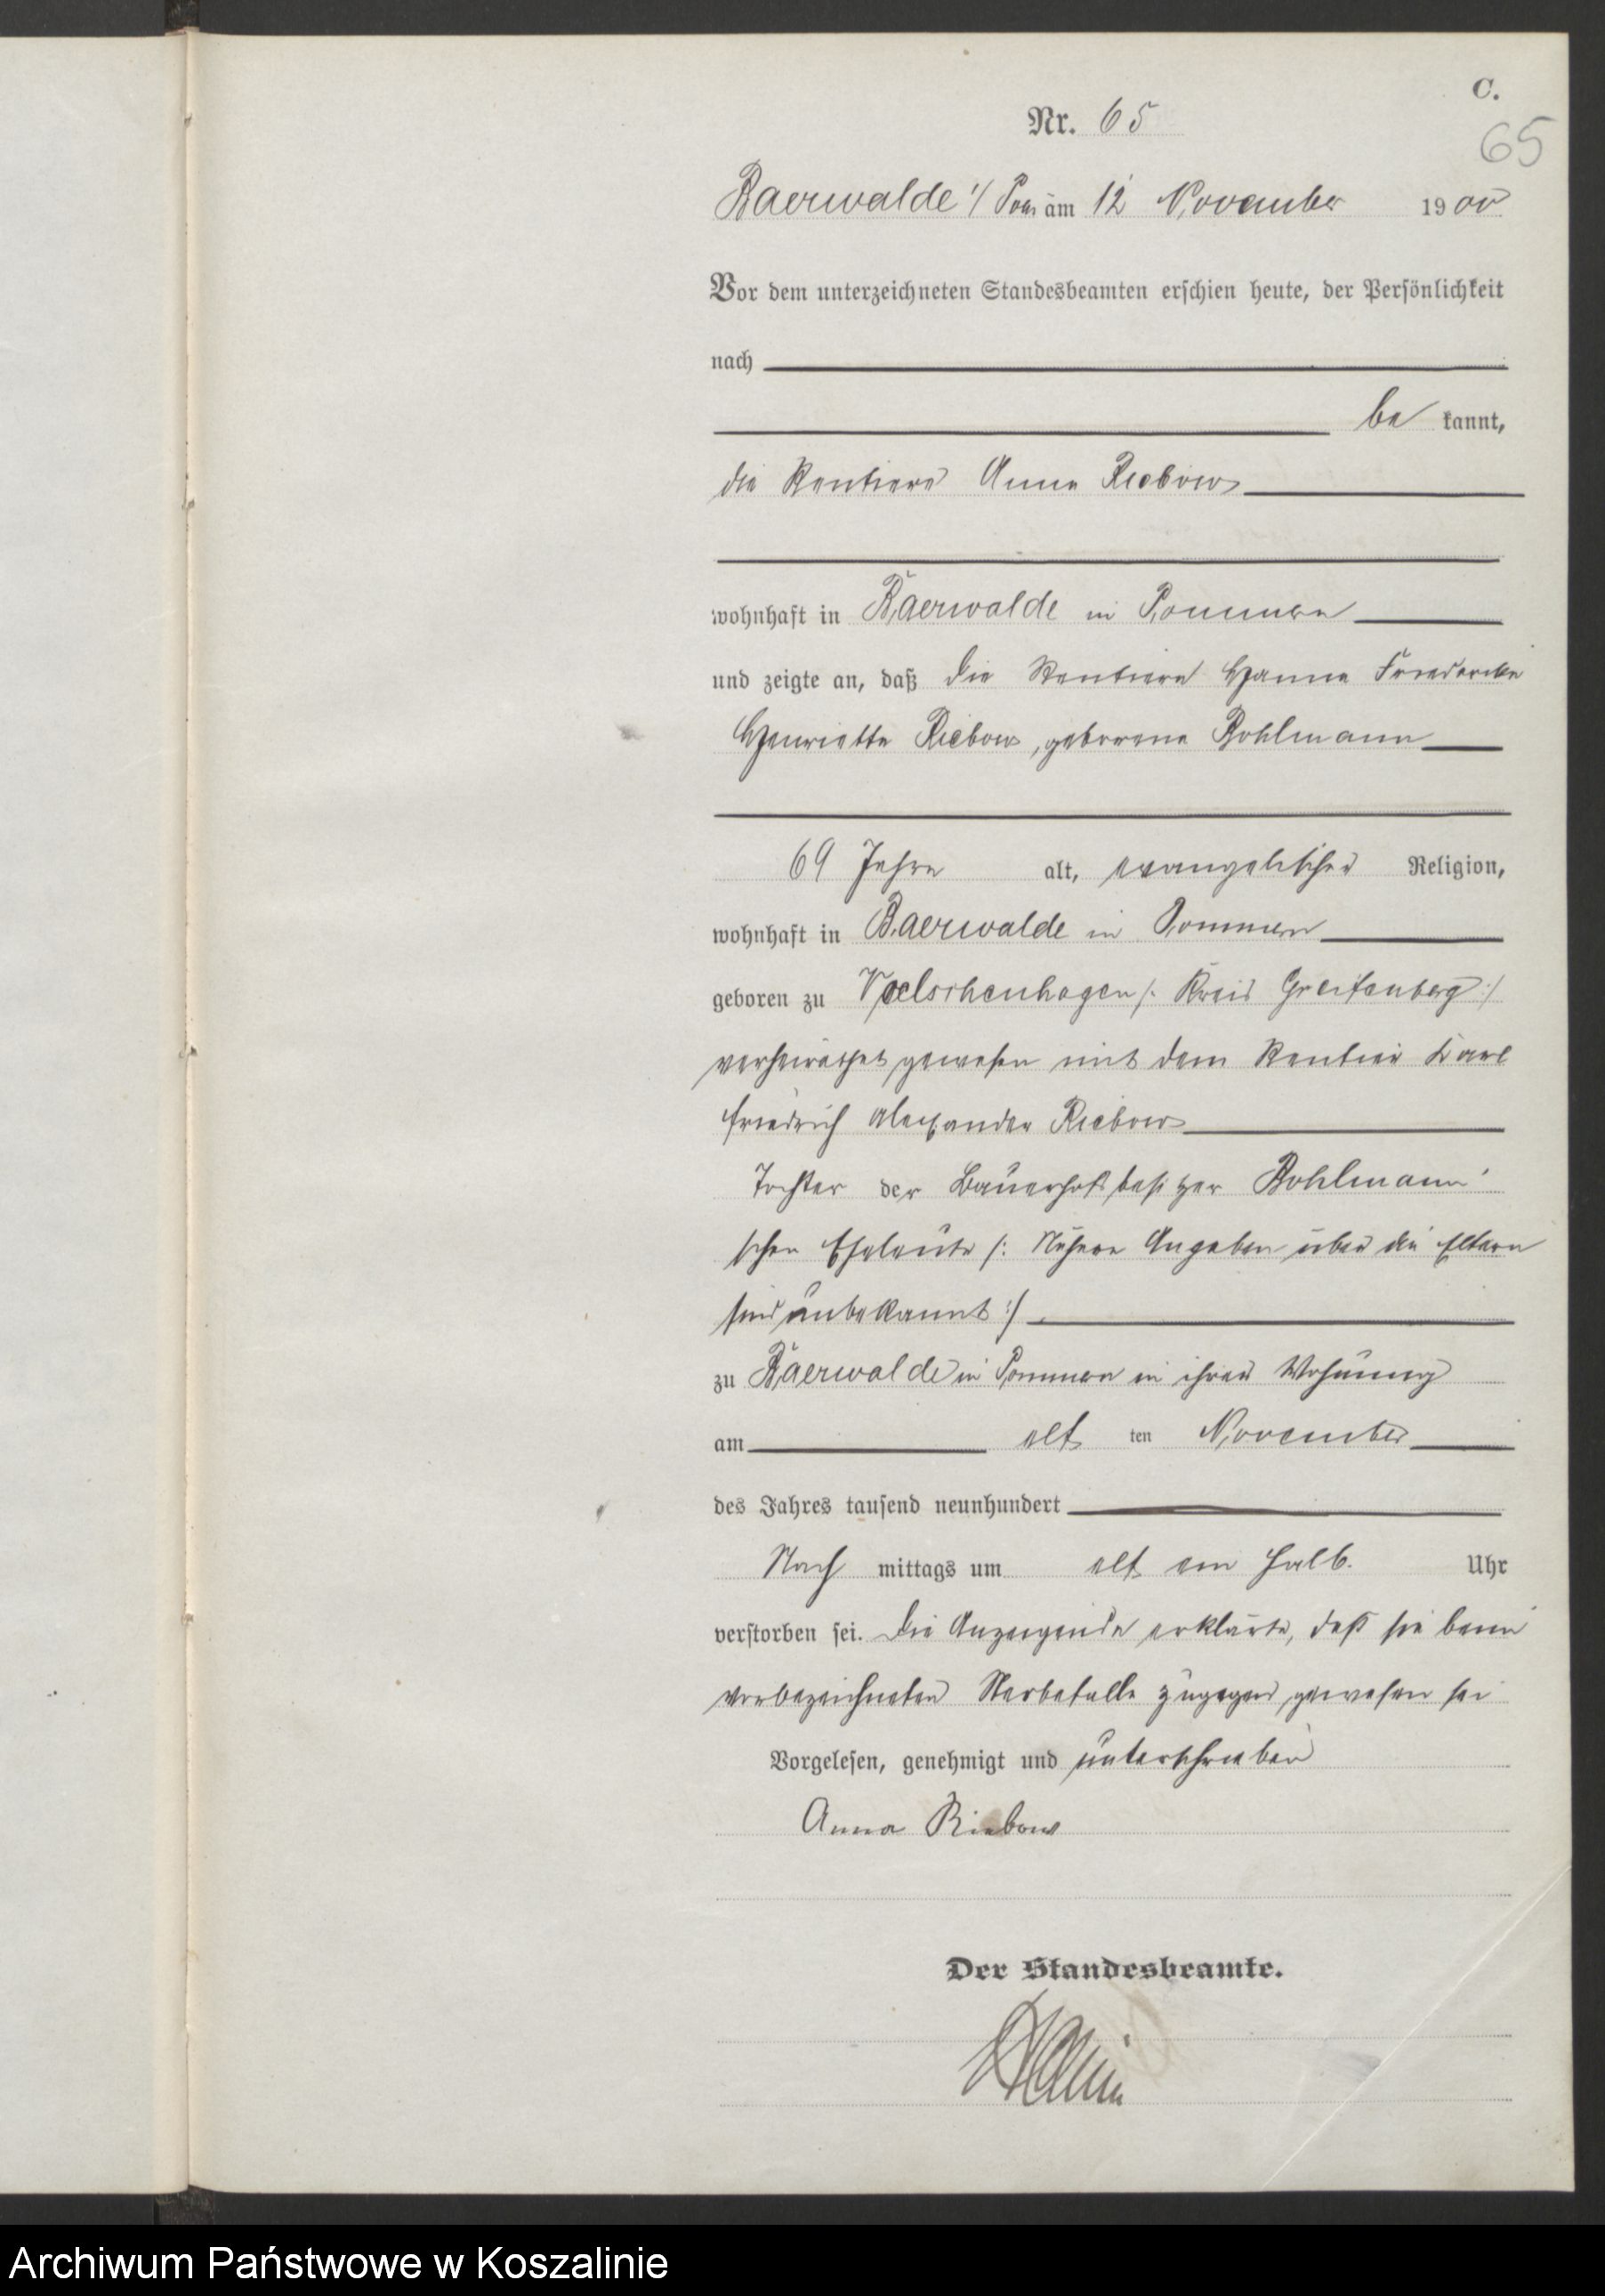 C.
Nr. 65
65
Baerwalde i/ Pom am 12 November 1900
Vor dem unterzeichneten Standesbeamten erschien heute, der Persönlichkeit
nach
be kannt,
die Rentiere Anna Riebow
wohnhaft in Baerwalde in Pommern
und zeigte an, daß die Rentiere Hanna Friedericke
Henriette Riebow, geborene Bohlmann
69 Jahre alt, evangelischer Religion,
wohnhaft in Baerwalde in Pommern
geboren zu Voelschenhagen /: Kreis Greifenberg :/
verheirathet gewesen mit dem Rentier Karl
Friedrich Alexander Riebow
Tochter der Bauerhofsbesitzer Bohlmann'
schen Eheleute /: Nähere Angaben über die Eltern
sind unbekannt :/
zu Baerwalde in Pommern in ihrer Wohnung
am elf ten November
des Jahres tausend neunhundert
Nach mittags um elf ein halb Uhr
verstorben sei. Die Anzeigende erklärte, daß sie beim
vorbezeichneten Sterbefalle zugegen gewesen sei
Vorgelesen, genehmigt und unterschrieben
Anna Riebow
Der Standesbeamte.
Archiwum Państwowe w Koszalinie